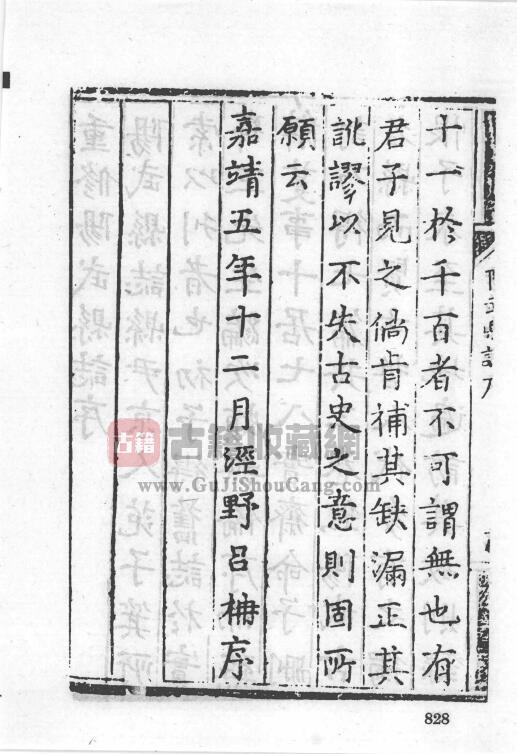 十一於千百者不可謂無也有
君子見之倘肯補其缺漏正其
訛謬以不失古史之意則固所
願云
嘉靖五年十二月涇野呂柟序
古籍 古籍收藏網
www.GuJiShouCang.com
828